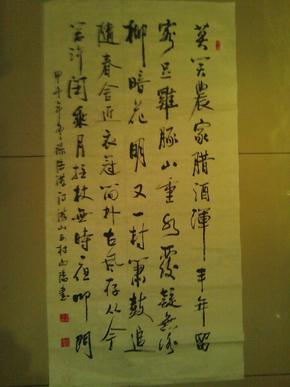 莫笑農家腊酒渾丰年留
客足雞豚山重水複疑無路
柳暗花明又一村簫鼓追
隨春舍近衣冠簡朴古風存从今
若許閑乘月拄杖無時夜叩門
甲午年 游山西村 書